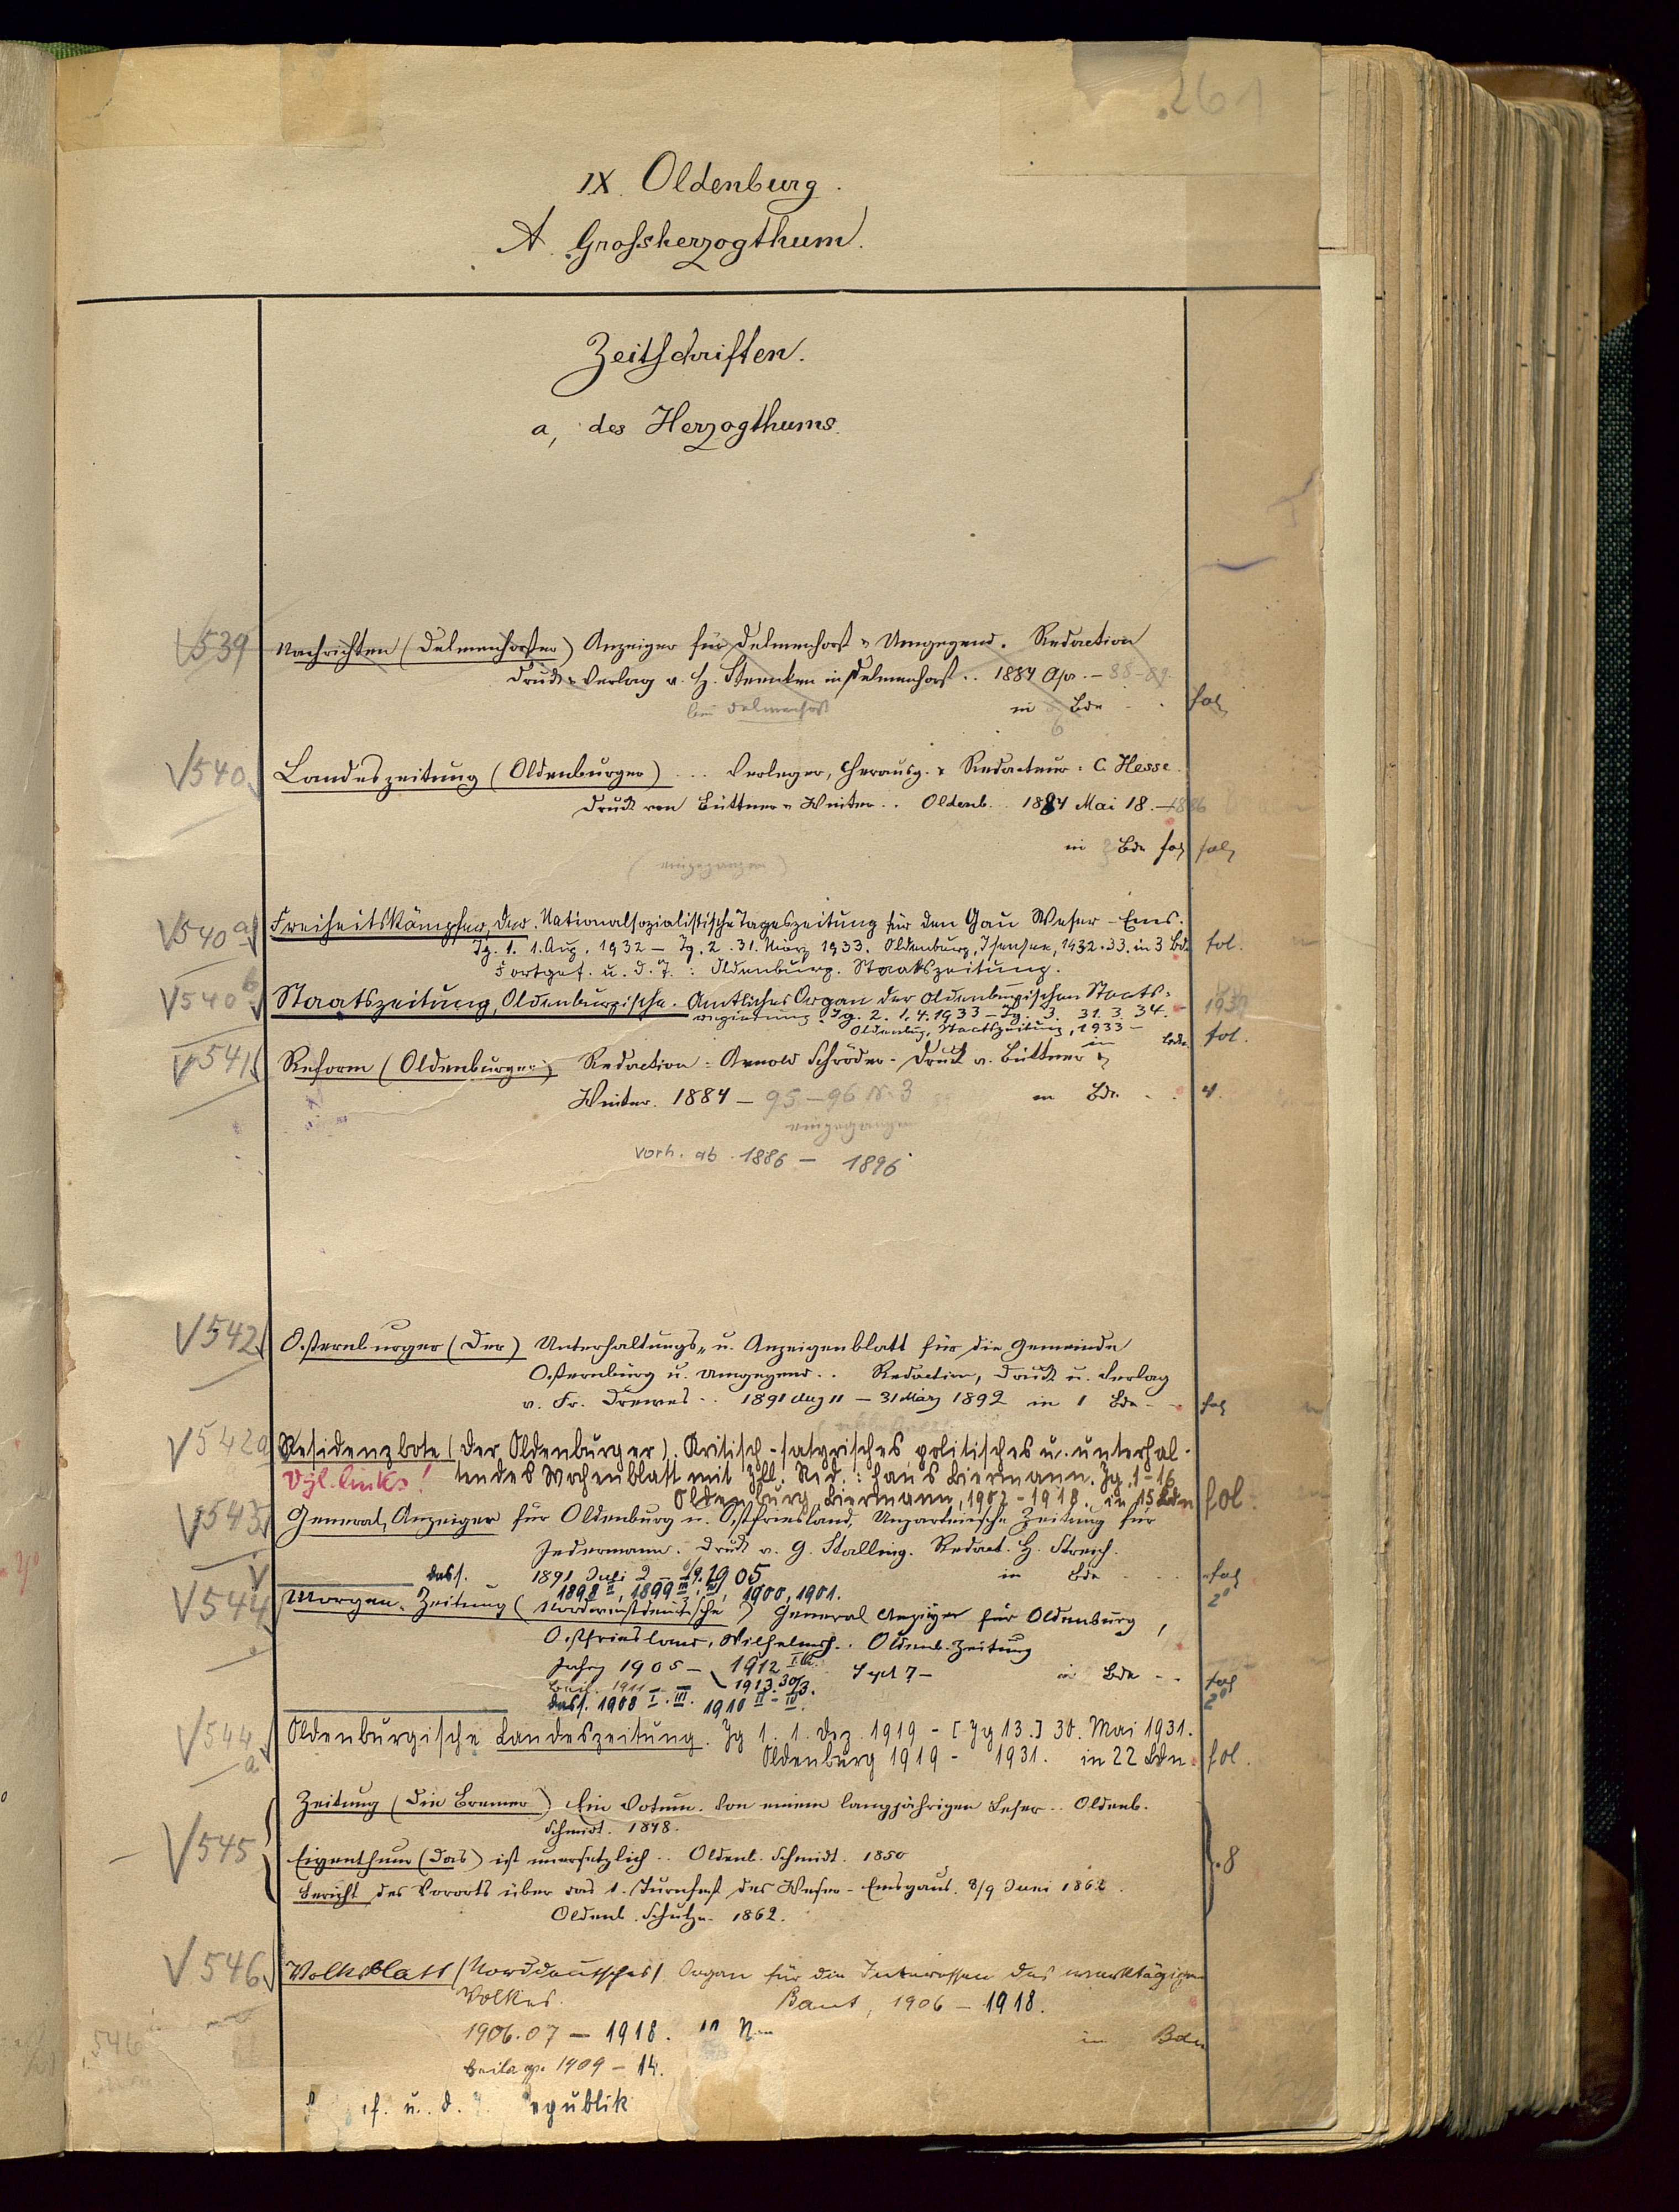 261
IX. Oldenburg.
A. Grossherzogthum.
Zeitschriften.
a, des Herzogthums.
539 Nachrichten (Delmenhorster) Anzeiger für Delmenhorst u Umgegend. Redaction
Druck u Verlag v. H. Steenken in Delmenhorst.. 1884 Apr. – 88-89.
in 6 Bdn fol
bei Delmenhorst
540 Landeszeitung (Oldenburger) ... Verleger, Herausg. u Redacteur: C. Hesse.
Druck von Büttner u Winter.. Oldenb. 1884 Mai 18. – 1886
in Bdn fol fol
(eingegangen)
540a Freiheitskämpfer, Der. Nationalsozialistische Tageszeitung für den Gau Weser-Ems.
Jg. 1. 1. Aug. 1932 – Jg. 2. 31. März 1933. Oldenburg, Isensee, 1932-33. in 3 Bdn fol.
Fortges. u. d. T.: Oldenburg. Staatszeitung.
540b Staatszeitung, Oldenburgische. Amtliches Organ der Oldenburgischen Staats-
regierung. Jg. 2. 1.4.1933 – Jg. 3. 31.3.34.
Oldenburg, Staatszeitung, 1933 – in Bdn. fol.
541 Reform (Oldenburger) Redaction: Arnold Schröder. Druck v. Büttner &
Winter. 1884 – 95 – 96 Nr. 3 in Bdn. 4.
eingegangen
vorh. ab 1886 – 1896
542 Osternburger (Der) Unterhaltungs- u. Anzeigenblatt für die Gemeinde
Osternburg u. Umgegend.. Redaction, Druck u. Verlag
v. Fr. Drewes.. 1891 Aug 11 – 31 März 1892 in 1 Bde fol
542a Residenzbote (Der Oldenburger). Kritisch-satyrisches politisches u. unterhal-
Vgl. links! tendes Wochenblatt mit Ill. Red.: Hans Biermann. Jg. 1-16
Oldenburg, Biermann, 1902-1918. in 15 Bdn fol.
543 General-Anzeiger für Oldenburg u. Ostfriesland, Unparteiische Zeitung für
Jedermann. Druck v. G. Stalling. Redact. H. Streich.
1891 Juli 2 – 1905 in Bdn fol
dass. 1898 II, 1899 III, IV, 1900, 1901. 2°
544 Morgen-Zeitung (Nordwestdeutsche) General Anzeiger für Oldenburg,
Ostfriesland, Wilhelmsh.. Oldenb. Zeitung
Jahrg 1905 – 1912 Sept 7 – in Bdn fol
Beil. 1911 – 1913. 30/3.
dass. 1908 I. III. 1910 II-IV. 2°
544a Oldenburgische Landeszeitung. Jg 1. 1. Dez. 1919 – [Jg 13.] 30. Mai 1931.
Oldenburg 1919 – 1931. in 22 Bdn. fol.
Zeitung (Die Bremer) Ein Votum. Von einem langjährigen Leser.. Oldenb.
Schmidt. 1848.
545 Eigenthum (Das) ist unersetzlich.. Oldenb. Schmidt. 1850 8
Bericht des Vororts über das 1. Turnfest des Weser-Emsgaus. 8/9 Juni 1862.
Oldenb. Schulze. 1862.
546 Volksblatt (Norddeutsches) Organ für die Interessen des werktätigen
Volkes. Bant, 1906 – 1918.
1906.07 – 1918. in Bdn
Beilage 1909 – 14.
f. u. d. T. Republik
546